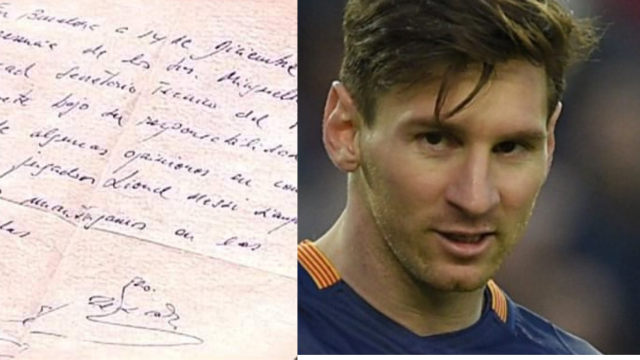 En Barcelona a 14 de Diciembre
resencia de los Srs. Minguell
Secretario Tecnico del
ete bajo su responsabilidad
de algunas opiniones en con
jugador Lionel Messi
mantengamos en las
das